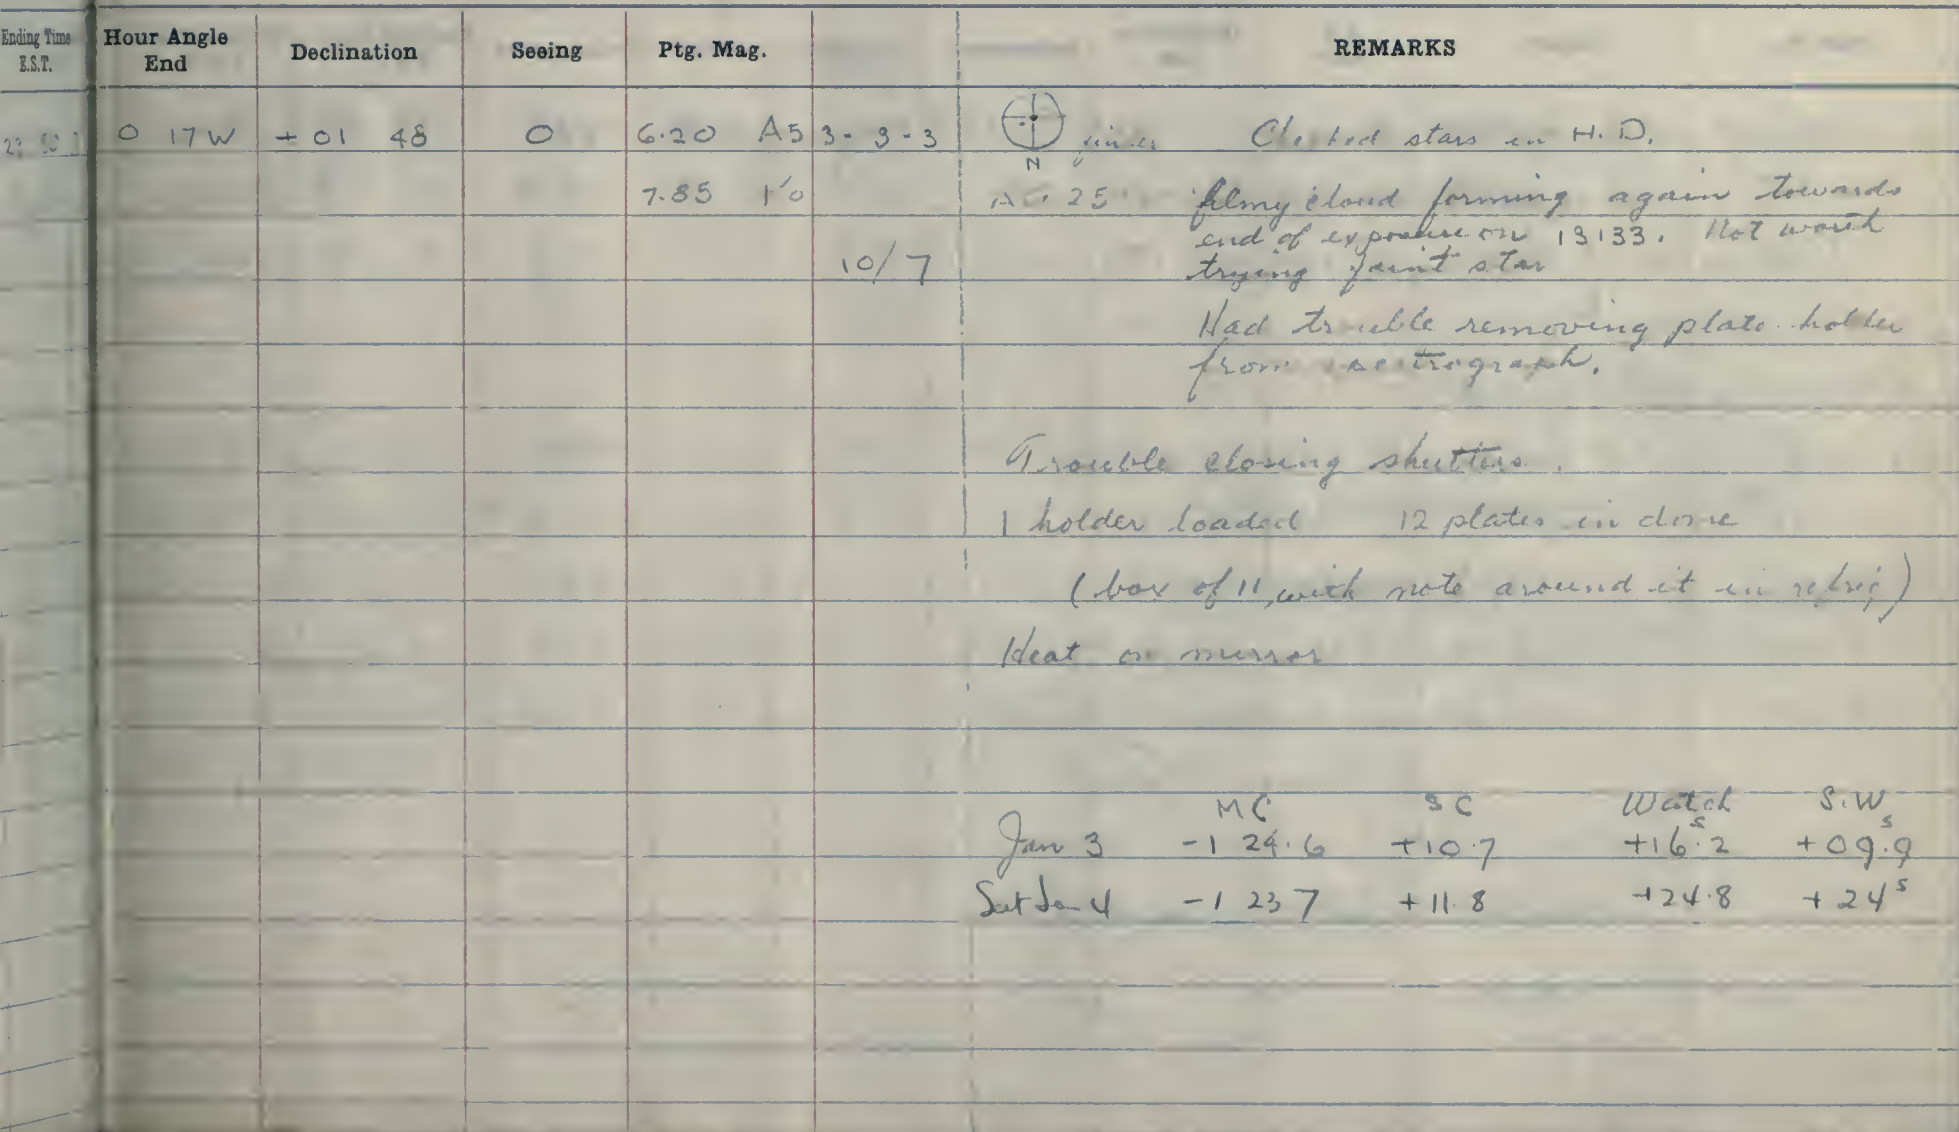 Ending Time E.S.T. Hour Angle End Declination Seeing Ptg. Mag. REMARKS
0 17 W +01 48 0 6.20 A5 3-3-3 N Checked stars in H.D.
7.85 25 filmy cloud forming again towards
end of exposure on 13133. Not worth
10/7 trying faint star
Had trouble removing plate holder
from spectrograph.
Trouble closing shutters.
1 holder loaded 12 plates in dome
(box of 11, with note around it in refrig)
Heat on mirror
MC SC Watch S.W
Jan 3 -1 24.6 +10.7 +16.2s +09.9s
Sat Jan 4 -1 23 7 +11.8 +24.8 +24s